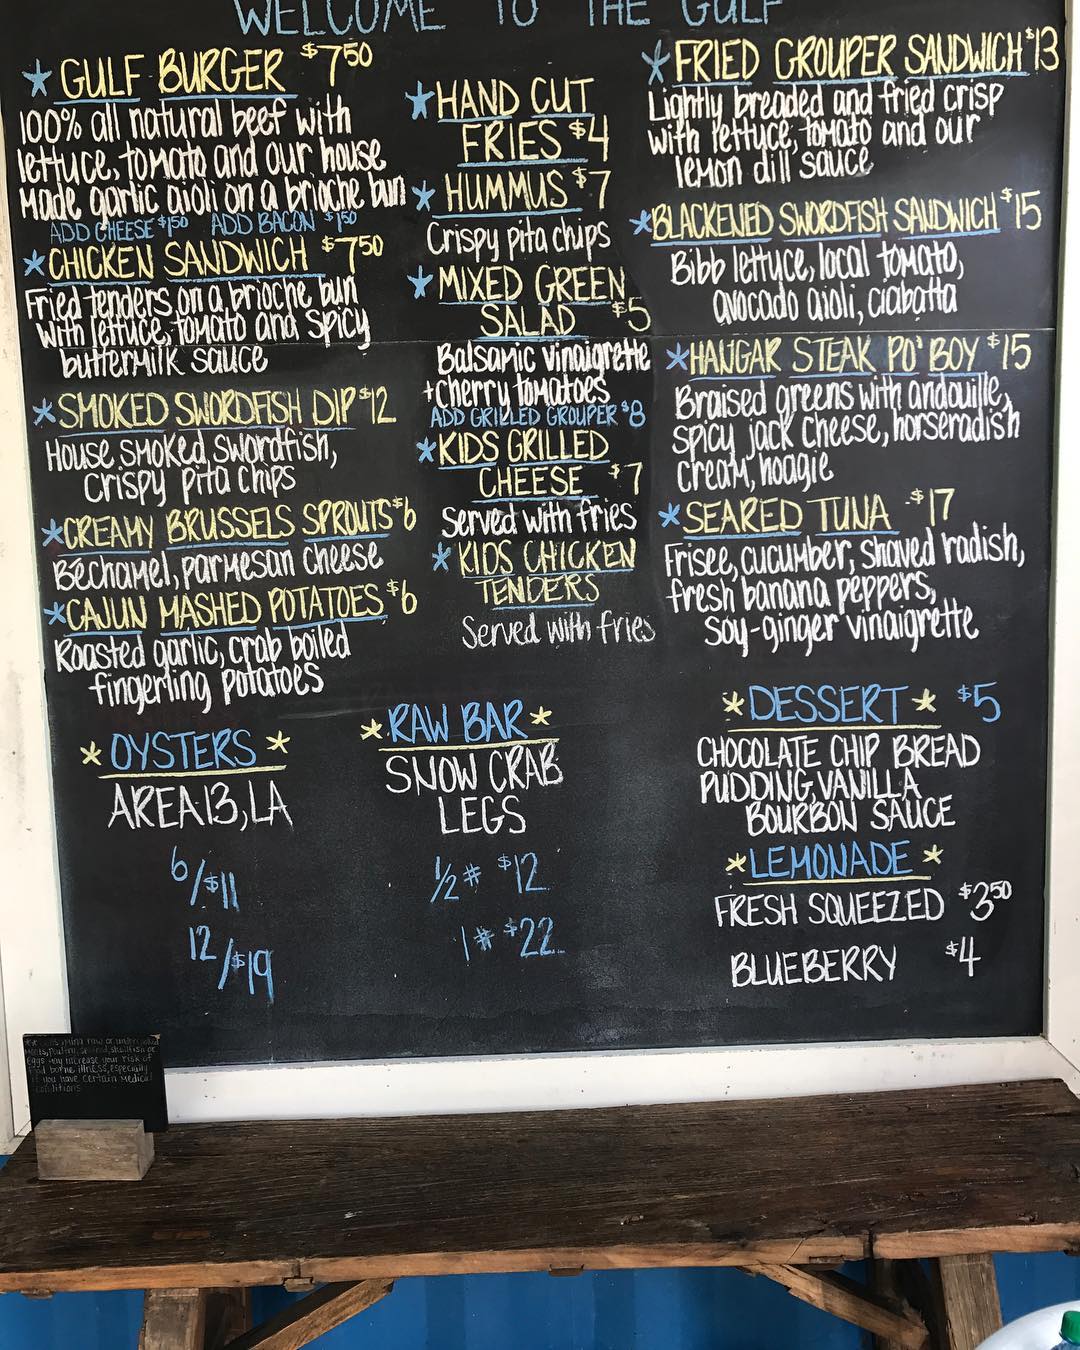 WELCOME TO THE GULF
* GULF BURGER $7.50
100% all natural beef with
lettuce, tomato and our house
made garlic aioli on a brioche bun
ADD CHEESE $1.50 ADD BACON $1.50
* CHICKEN SANDWICH $7.50
Fried tenders on a brioche bun
with lettuce, tomato and spicy
buttermilk sauce
* SMOKED SWORDFISH DIP $12
House smoked swordfish,
crispy pita chips
* CREAMY BRUSSELS SPROUTS $6
Béchamel, parmesan cheese
* CAJUN MASHED POTATOES $6
Roasted garlic, crab boiled
fingerling potatoes
* HAND CUT
FRIES $4
* HUMMUS $7
Crispy pita chips
* MIXED GREEN
SALAD $5
Balsamic vinaigrette
+ cherry tomatoes
ADD GRILLED GROUPER $8
* KIDS GRILLED
CHEESE $7
Served with fries
* KIDS CHICKEN
TENDERS
Served with fries
* FRIED GROUPER SANDWICH $13
Lightly breaded and fried crisp
with lettuce, tomato and our
lemon dill sauce
* BLACKENED SWORDFISH SANDWICH $15
Bibb lettuce, local tomato,
avocado aioli, ciabatta
* HANGAR STEAK PO' BOY $15
Braised greens with andouille,
spicy jack cheese, horseradish
cream, hoagie
* SEARED TUNA $17
Frisee, cucumber, shaved radish,
fresh banana peppers,
soy-ginger vinaigrette
* OYSTERS *
AREA 13, LA
6/$11
12/$19
* RAW BAR *
SNOW CRAB
LEGS
1/2 # $12
1 # $22
* DESSERT * $5
CHOCOLATE CHIP BREAD
PUDDING, VANILLA
BOURBON SAUCE
* LEMONADE *
FRESH SQUEEZED $3.50
BLUEBERRY $4
raw or undercooked
meats, poultry, shellfish or
eggs may increase your risk of
food borne illness, especially
if you have certain medical
conditions